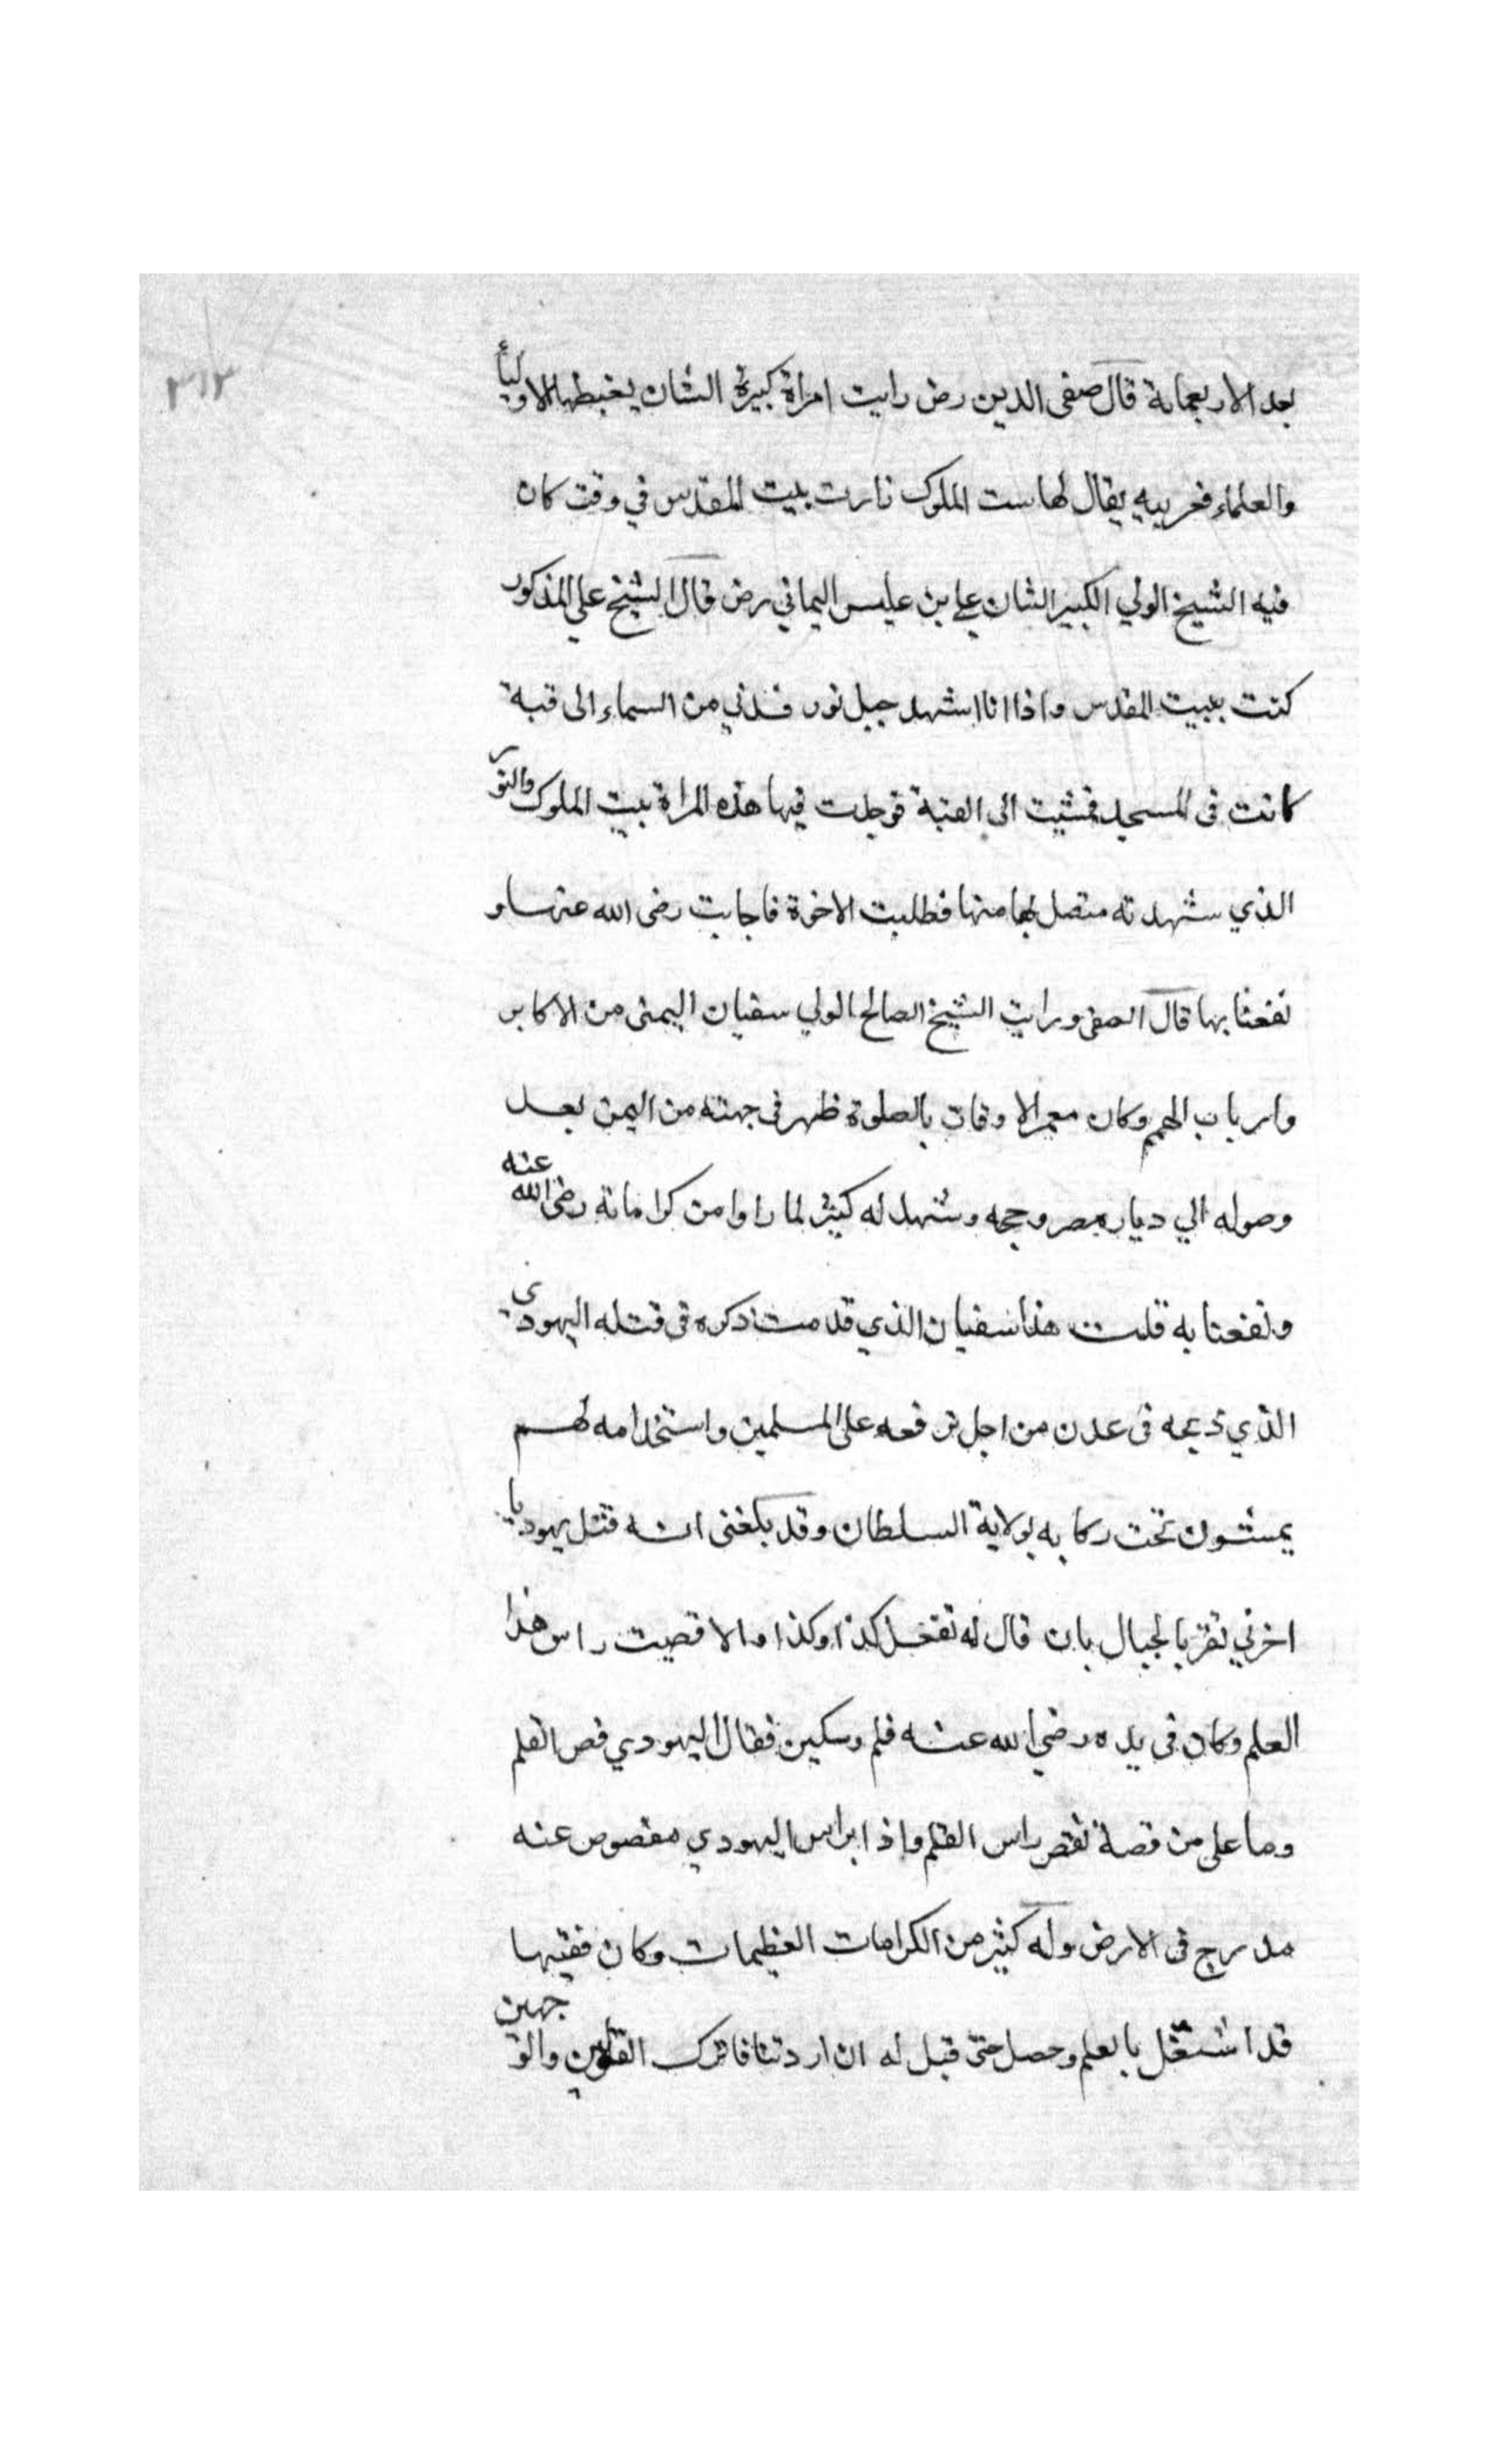 ٣١٣
بعد الاربعماية قال صفى الدين رض رايت امراة كبيرة الشان يغبطها الاولياء
والعلماء مغربيه يقال لها ست الملوك زارت بيت المقدس في وقت كان
فيه الشيخ الولي الكبير الشان علي بن عليس اليماني رض قال الشيخ علي المذكور
كنت ببيت المقدس واذا انا اشهد حبل نور فدني من السماء الى قبة
كانت فى المسجد فمشيت الى القبة فوجدت فيها هذه المراة بيت الملوك والنور
الذي شهدته متصل بها منها فطلبت الاخوة فاجابت رضى الله عنها و
نفعنا بها قال الصفى ورايت الشيخ الصالح الولي سفيان اليمنى من الاكابر
وارباب الهمم وكان معمر الاوقات بالصلوة ظهر فى جهته من اليمن بعد
وصوله الي ديار مصر وحجه وشهد له كثير لما راوا من كراماته رضى الله عنه
ونفعنا به قلت هذا سفيان الذي قدمت ذكره فى قتله اليهودي
الذي ذبحه فى عدن من اجل ترفعه على المسلمين واستخدامه لهم
يمشون تحت ركابه بولاية السلطان وقد بلغنى انه قتل يهوديا
اخر في بالجبال بان قال له تفعل كذا وكذا والا قصيت راس هذا
العلم وكان فى يده رضي الله عنه قلم وسكين فقال اليهودي قص القلم
وما على من قصة فقص راس القلم واذا براس اليهودي مقصوص عنه
مدرج فى الارض وله كثير من الكرامات العظيمات وكان فقيها
قد اشتغل بالعلم وحصل حتى قيل له ان اردتنا فاترك القولين والوجهين